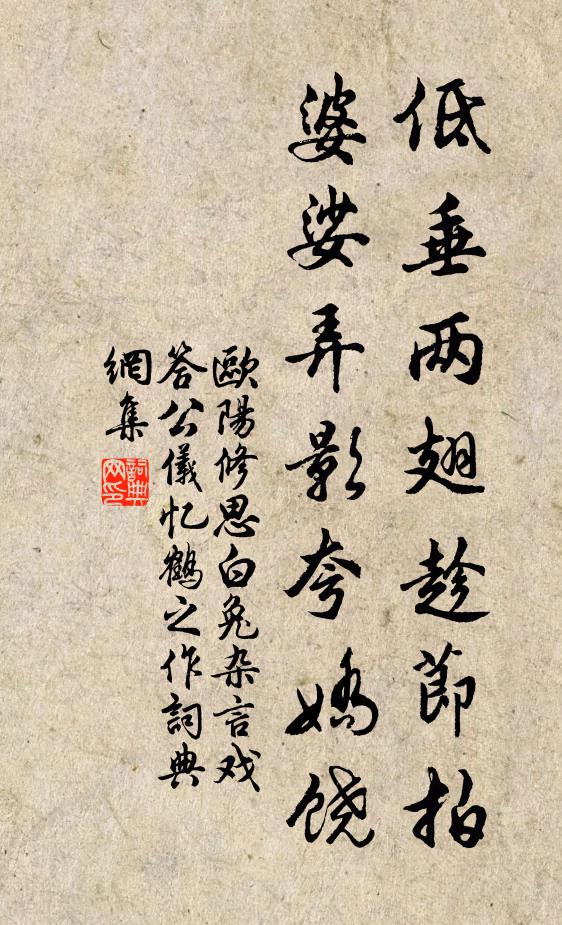 低垂两翅趁節拍
婆娑弄影夸嬌饶
歐陽修思白兔杂言戏
答公儀忆鶴之作詞典
網集
詞典
网印